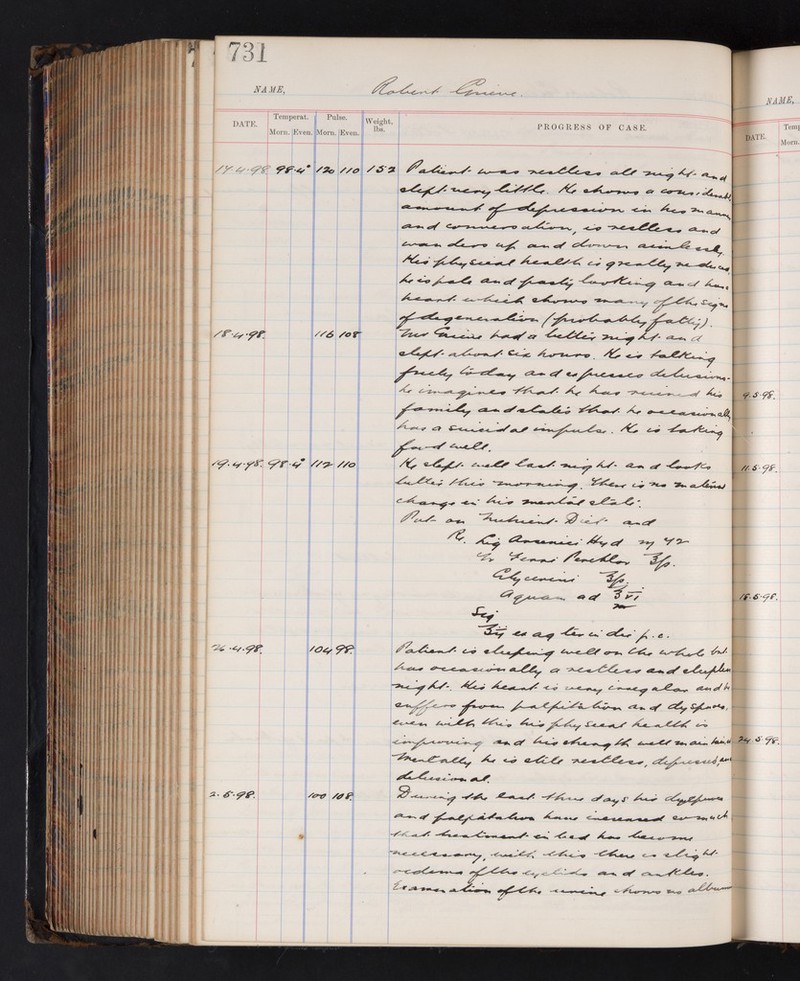 731
NAME, Robert Grieve.
DATE. Temperat. Pulse. Weight, lbs. PROGRESS OF CASE.
Morn. Even. Morn. Even.
17.4.98. 98.4° 120 110 152 Patient was restless all night and
slept very little. He shows a considerable
amount of depression in his manner
and conversation, is restless and
wanders up and down aimlessly.
His physical health is greatly reduced,
he is pale and pasty looking and has a
heart which shows many of the signs
of degeneration (probably fatty).
18.4.98. 116 108 Mr Grieve had a better night and
slept about six hours. He is talking
freely today and expresses delusions -
he imagines that he has ruined his
family and states that he occasionally
has a suicidal impulse. He is taking
food well.
19.4.98. 98.4° 112 110 He slept well last night and looks
better this morning. There is no material
change in his mental state.
Put on Nutrient Diet and
Rx. Liq Arsenici Hyd m 42
Tr Ferri Perchlor ʒfs.
Glycerini ʒfs.
Aquam ad ℥vi
m
Sig
ex aq ter in die p.c.
26.4.98. 104 98. Patient is sleeping well on the whole but
has occasionally a restless and sleepless
night. His heart is very irregular and he
suffers from palpitation and dyspnoea,
even with this his physical health is
improving and his strength well maintained
Mentally he is still restless, depressed, and
delusional.
2.5.98. 100 108. During the last three days his dyspnoea
and palpitation have increased so much
that treatment in bed has become
necessary, with this there is slight
oedema of the eyelids and ankles.
Examination of the urine shows no albumen
NAME,
DATE. Temp
Morn.
9.5.98.
11.5.98.
18.5.98.
24.5.98.